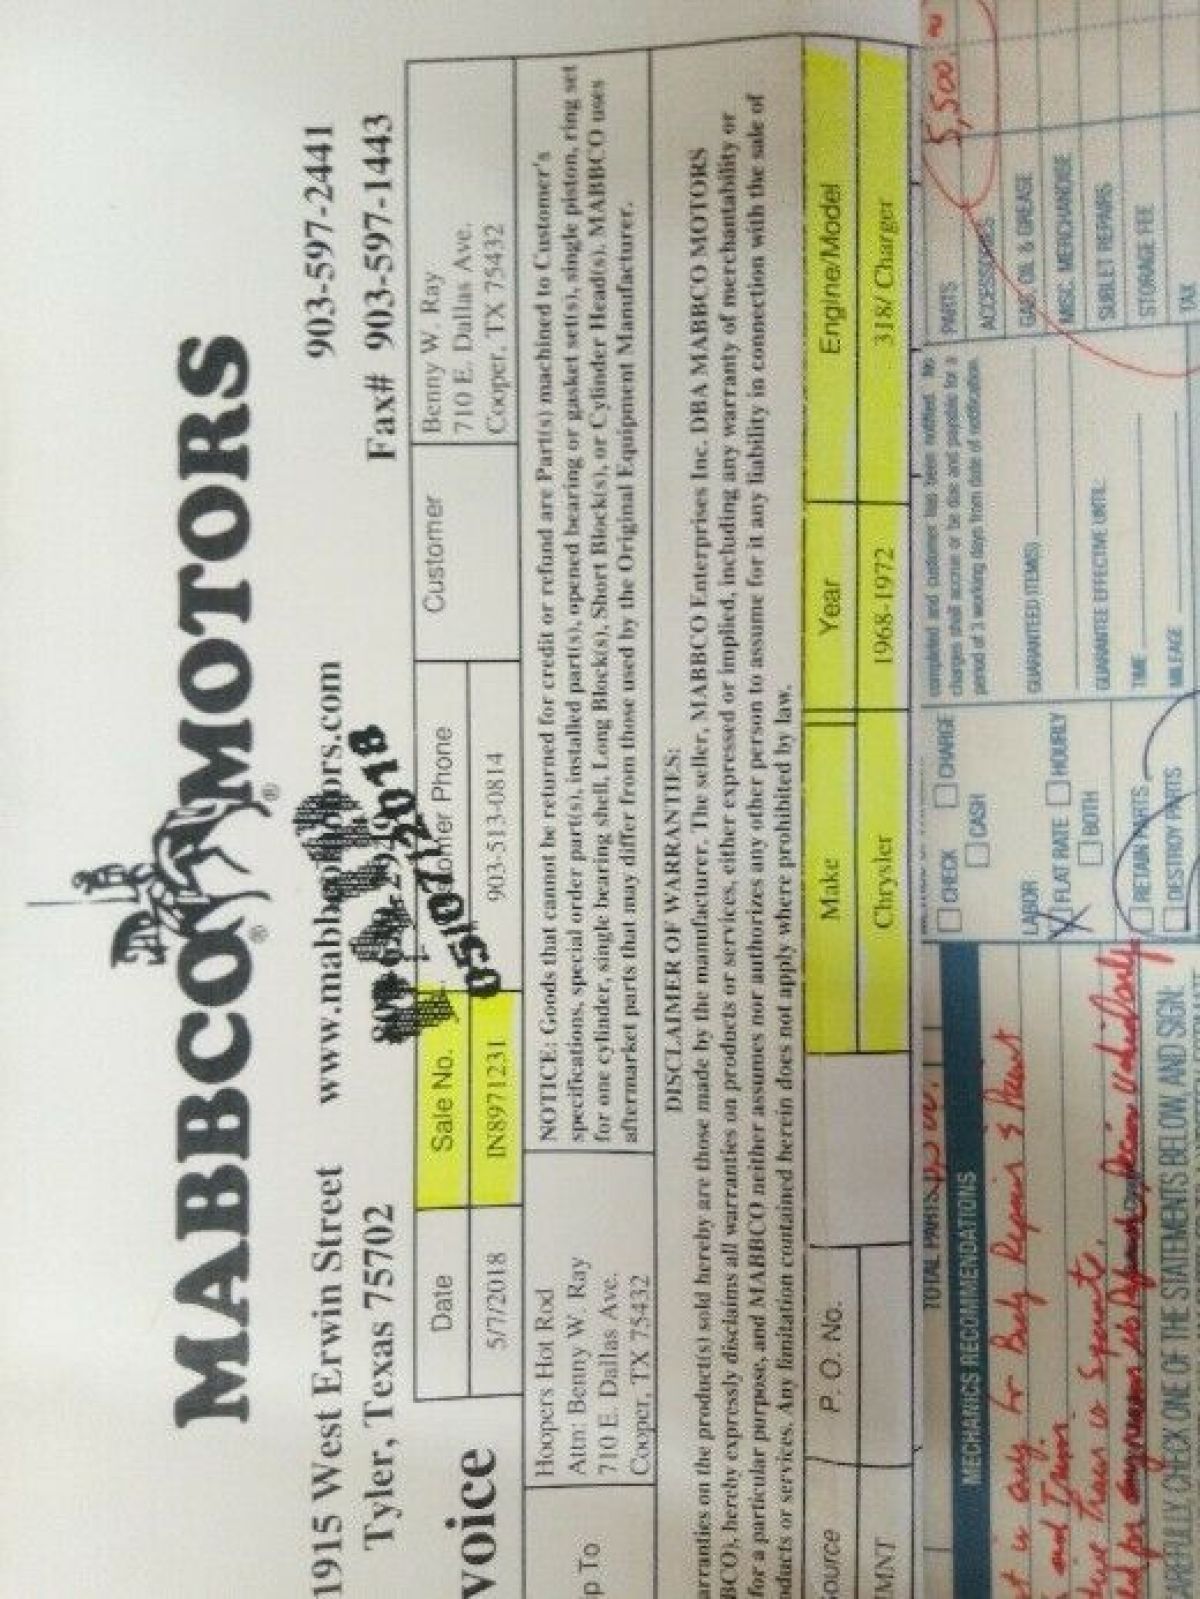 MABBCO MOTORS
1915 West Erwin Street www.mabbcomotors.com 903-597-2441
Tyler, Texas 75702 Fax# 903-597-1443
05/07/2018
voice
Date Sale No. Customer Phone Customer Benny W. Ray
710 E. Dallas Ave.
Cooper, TX 75432
5/7/2018 IN8971231 903-513-0814
p To
Hoopers Hot Rod
Attn: Benny W. Ray
710 E. Dallas Ave.
Cooper, TX 75432
NOTICE: Goods that cannot be returned for credit or refund are Part(s) machined to Customer's
specifications, special order part(s), installed part(s), opened bearing or gasket set(s), single piston, ring set
for one cylinder, single bearing shell, Long Block(s), Short Block(s), or Cylinder Head(s). MABBCO uses
aftermarket parts that may differ from those used by the Original Equipment Manufacturer.
DISCLAIMER OF WARRANTIES:
arranties on the product(s) sold hereby are those made by the manufacturer. The seller, MABBCO Enterprises Inc. DBA MABBCO MOTORS
BCO), hereby expressly disclaims all warranties on products or services, either expressed or implied, including any warranty of merchantability or
for a particular purpose, and MABBCO neither assumes nor authorizes any other person to assume for it any liability in connection with the sale of
oducts or services. Any limitation contained herein does not apply where prohibited by law.
ource P. O. No. Make Year Engine/Model
MNT Chrysler 1968-1972 318/ Charger
TOTAL PARTS
MECHANICS RECOMMENDATIONS
is only for Body Repair & Paint
and
is Separate.
for
CAREFULLY CHECK ONE OF THE STATEMENTS BELOW, AND SIGN:
CHECK CHARGE
CASH
LABOR
X FLAT RATE HOURLY
BOTH
RETAIN PARTS
DESTROY PARTS
completed and customer has been notified. No
charges shall accrue or be due and payable for a
period of 3 working days from date of notification.
GUARANTEED ITEM(S)
GUARANTEE EFFECTIVE UNTIL:
TIME
MILEAGE
PARTS 5,500
ACCESSORIES
GAS, OIL & GREASE
MISC MERCHANDISE
SUBLET REPAIRS
STORAGE FEE
TAX